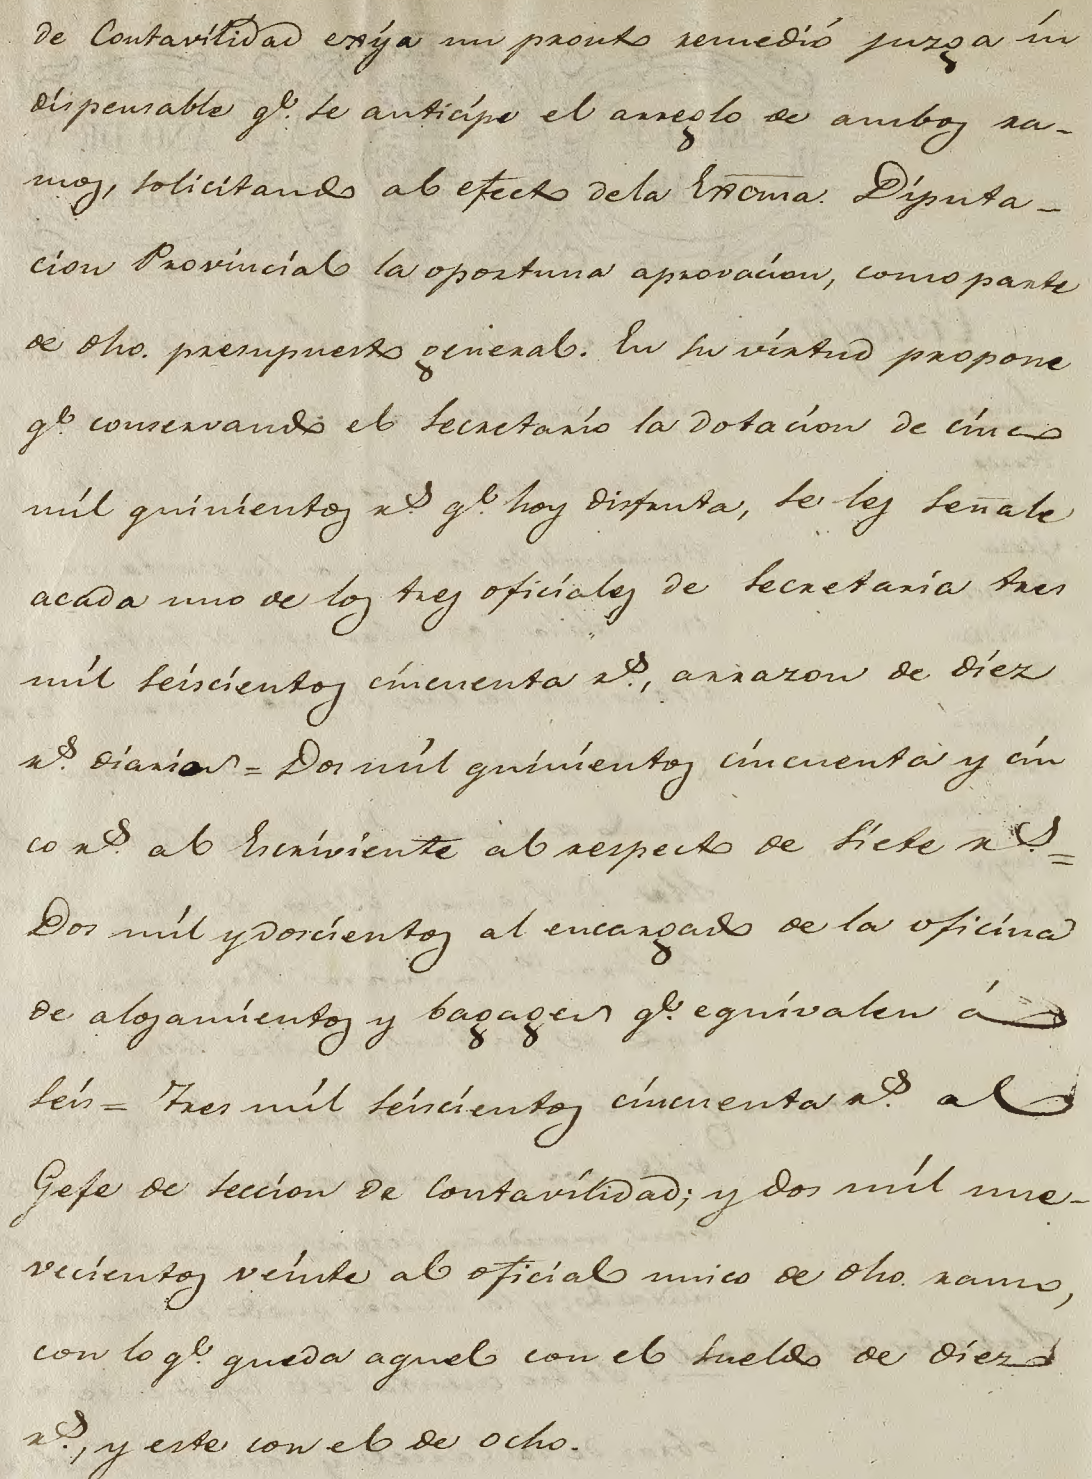 de Contavilidad exija un pronto remedió juzga in
dispensable qᵉ. se anticipe el arreglo de ambos ra-
mos, solicitando al efecto dela Excma. Diputa-
cion Provincial la oportuna aprovacion, como parte
de dho. presupuesto general. En su virtud propone
qᵉ conservando el Secretario la dotacion de cinco
mil quinientos rˢ qᵉ. hoy disfruta, se les señale
acada uno de los tres oficiales de Secretaria tres
mil seiscientos cincuenta rˢ., arrazon de diez
rˢ. diarios = Dos mil quinientos cincuenta y cin
co rˢ. al Escriviente al respecto de siete rˢ. =
Dos mil y doscientos al encargado de la oficina
de alogamientos y bagages qᵉ. equivalen á
seis = Tres mil seiscientos cincuenta rˢ. al
Gefe de seccion de Contavilidad; y dos mil nue-
vecientos veinte al oficial unico de dho. ramo,
con lo qᵉ. queda aquel con el sueldo de diez
rˢ., y este con el de ocho.